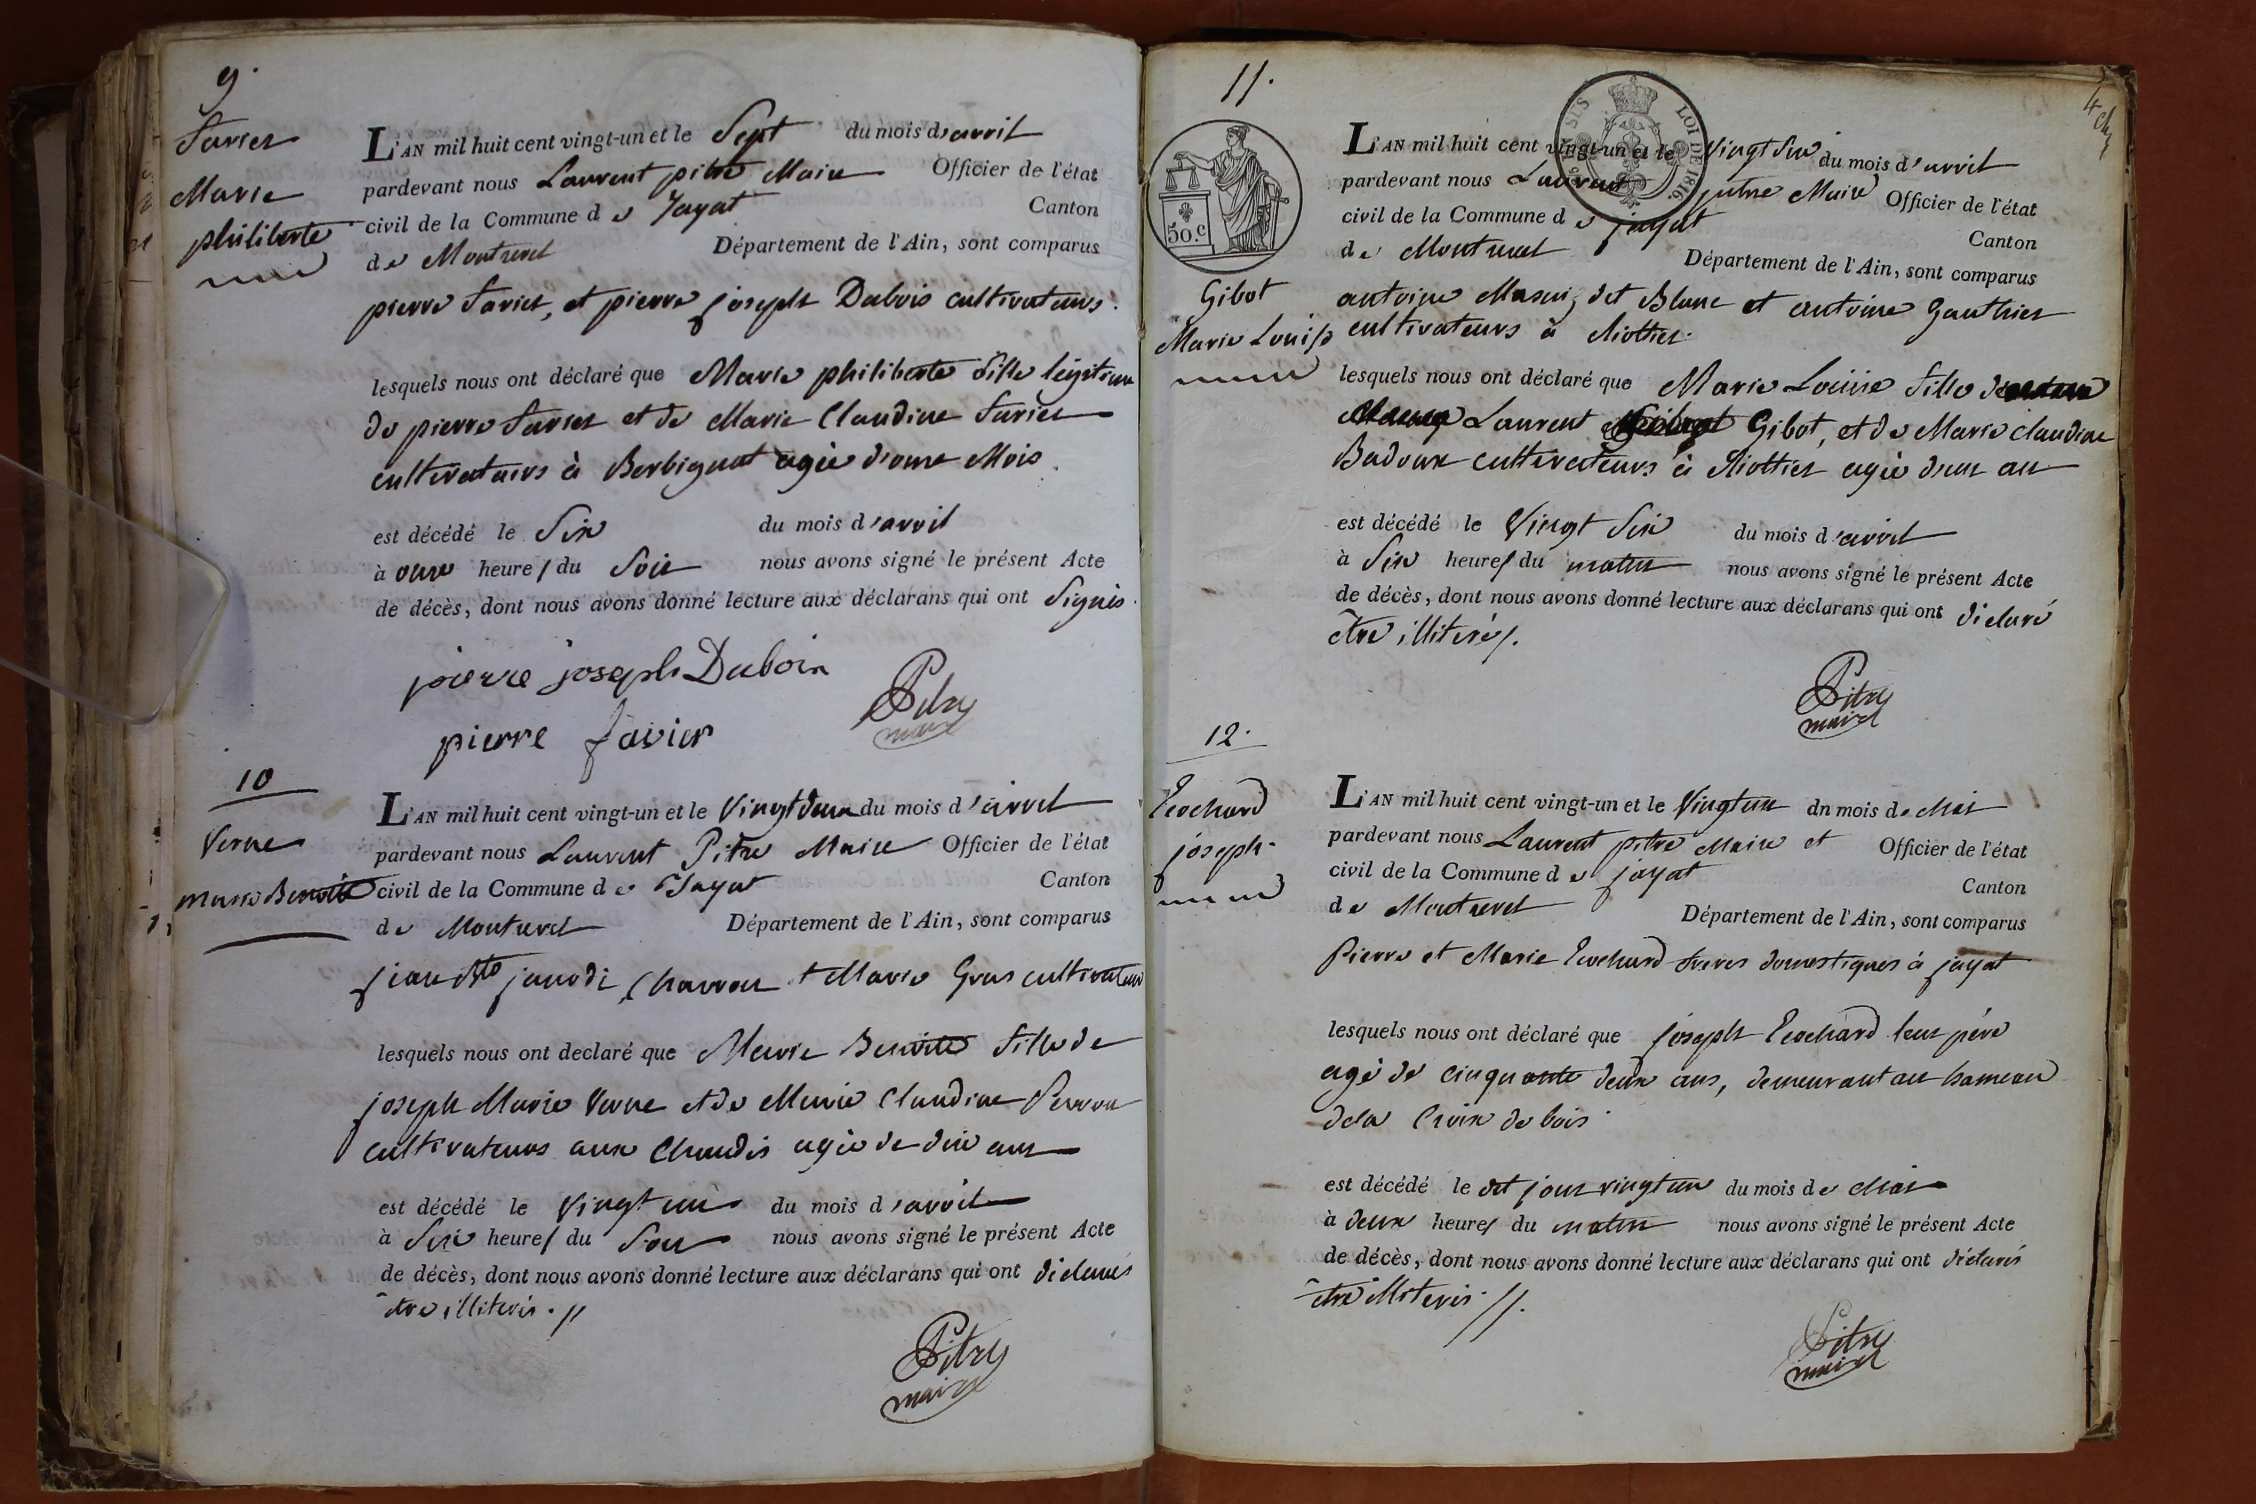 9.
Favier
Marie
philiberte
L'AN mil huit cent vingt-un et le Sept du mois d'avril
pardevant nous Laurent pitre Maire Officier de l'état
civil de la Commune de Jayat Canton
de Montrevel Département de l'Ain, sont comparus
pierre Favier, et pierre joseph Dubois cultivateurs.
lesquels nous ont déclaré que Marie philiberte fille légitime
de pierre Favier et de Marie Claudine Furier
cultivateurs à Berbignat agée d'onze Mois.
est décédé le Six du mois d'avril
à onze heures du Soir nous avons signé le présent Acte
de décès, dont nous avons donné lecture aux déclarans qui ont Signés.
pierre joseph Duboin
pierre favier
Pitre
maire
10
Verne
marie Benoite
L'AN mil huit cent vingt-un et le Vingt deux du mois d'avril
pardevant nous Laurent Pitre Maire Officier de l'état
civil de la Commune de Jayat Canton
de Montrevel Département de l'Ain, sont comparus
jean Bte janodi, Charron et Marie Gras cultivateur
lesquels nous ont declaré que Marie Benoite fille de
joseph Marie Verne et de Marie Claudine Perron
cultivateurs aux Chaudis agée de dix ans
est décédé le Vingt un du mois d'avril
à Six heures du Soir nous avons signé le présent Acte
de décès, dont nous avons donné lecture aux déclarans qui ont déclarés
être illiterés. //
Pitre
maire
4
11.
SUS LOI DE 1816.
50.c
Gibot
Marie Louise
L'AN mil huit cent vingt-un et le Vingt Six du mois d'avril
pardevant nous Laurent pitre Maire Officier de l'état
civil de la Commune de jayat Canton
de Montrevel Département de l'Ain, sont comparus
antoine Masuiz dit Blanc et antoine Gauthier
cultivateurs à Cliottier.
lesquels nous ont déclaré que Marie Louise fille de
Laurent Gibot, et de Marie claudine
Badoux cultivateurs à Cliottier agée d'un an
est décédé le Vingt Six du mois d'avril
à Six heures du matin nous avons signé le présent Acte
de décès, dont nous avons donné lecture aux déclarans qui ont déclaré
être illiterés.
Pitre
maire
12.
Ecochard
joseph.
L'AN mil huit cent vingt-un et le Vingt un dn mois de Mai
pardevant nous Laurent pitre Maire et Officier de l'état
civil de la Commune de jayat Canton
de Montrevel Département de l'Ain, sont comparus
Pierre et Marie Ecochard freres domestiques à jayat
lesquels nous ont déclaré que joseph Ecochard leur père
agé de cinquante deux ans, demeurant au hameau
dela Croix de bois.
est décédé le dit jour vingt un du mois de Mai
à deux heures du matin nous avons signé le présent Acte
de décès, dont nous avons donné lecture aux déclarans qui ont déclarés
être illiterés. //.
Pitre
maire